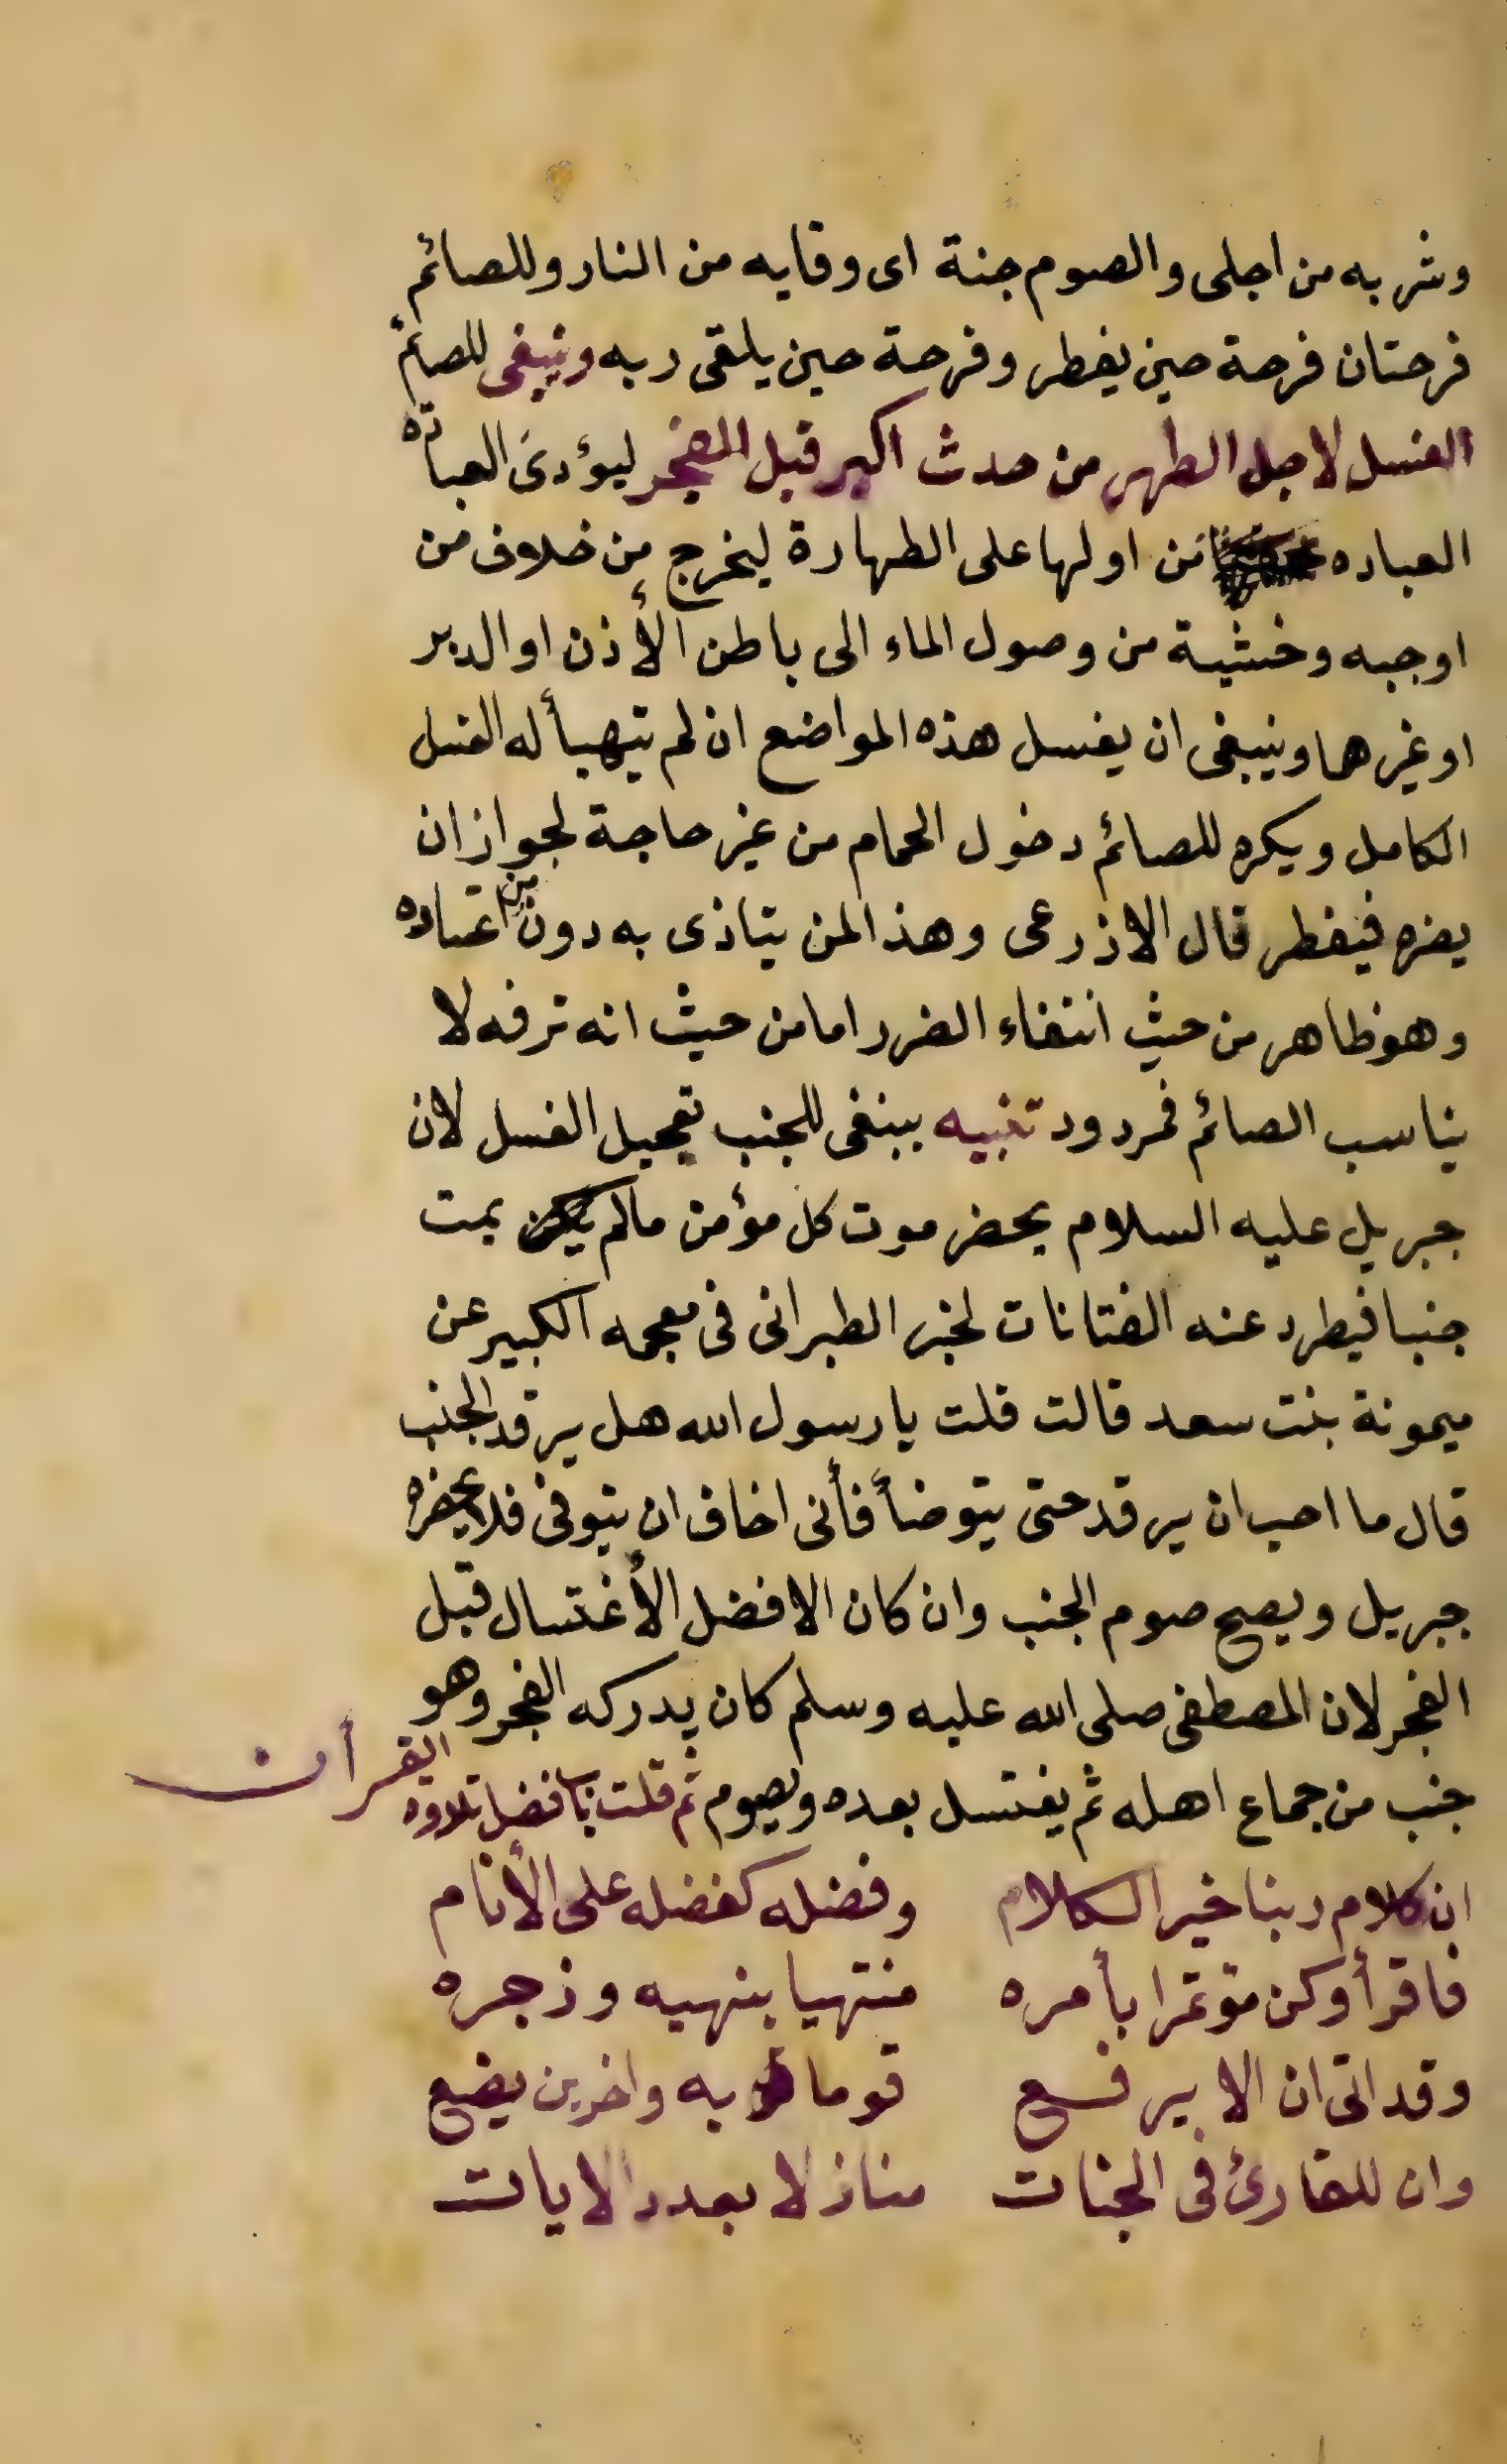 وشربه من اجلى والصوم جنة اى وقايه من النار وللصائم
فرحتان فرحة حين يفطر وفرحة حين يلقى ربه وينبغى للصائم
الغسل لاجل الطهر من حدث اكبر قبل الفجر ليؤدى العبادة
العباده من اولها على الطهارة ليخرج من خلاف من
اوجبه وخشية من وصول الماء الى باطن الأذن او الدبر
او غيرهما وينبغى ان يغسل هذه المواضع ان لم يتهيأ له الغسل
الكامل ويكره للصائم دخول الحمام من غير حاجة لجواز ان
يضره فيفطر قال الاذرعى وهذا لمن يتاذى به دون من اعتاده
وهو ظاهر من حيث انتفاء الضرر اما من حيث انه ترفه لا
يناسب الصائم فمردود تنبيه ينبغى للجنب تعجيل الغسل لان
جبريل عليه السلام يحضر موت كل مؤمن مالم يمت
جنبا فيطرد عنه الفتانات لخبر الطبرانى فى معجمه الكبير عن
ميمونة بنت سعد قالت قلت يا رسول الله هل يرقد الجنب
قال ما احب ان يرقد حتى يتوضأ فأنى اخاف ان يتوفى فلا يحضره
جبريل ويصح صوم الجنب وان كان الافضل الأغتسال قبل
الفجر لان المصطفى صلى الله عليه وسلم كان يدركه الفجر وهو
جنب من جماع اهله ثم يغتسل بعده ويصوم ثم قلت باب فضل تلاوة القرأن
ان كلام ربنا خير الكلام وفضله كفضله على الأنام
فاقرأ وكن مؤتمرا بأمره منتهيا بنهيه وزجره
وقد اتى ان الا يرفع قوما به واخرين يضع
وان للقارئ فى الجنات منازلا بعدد الايات